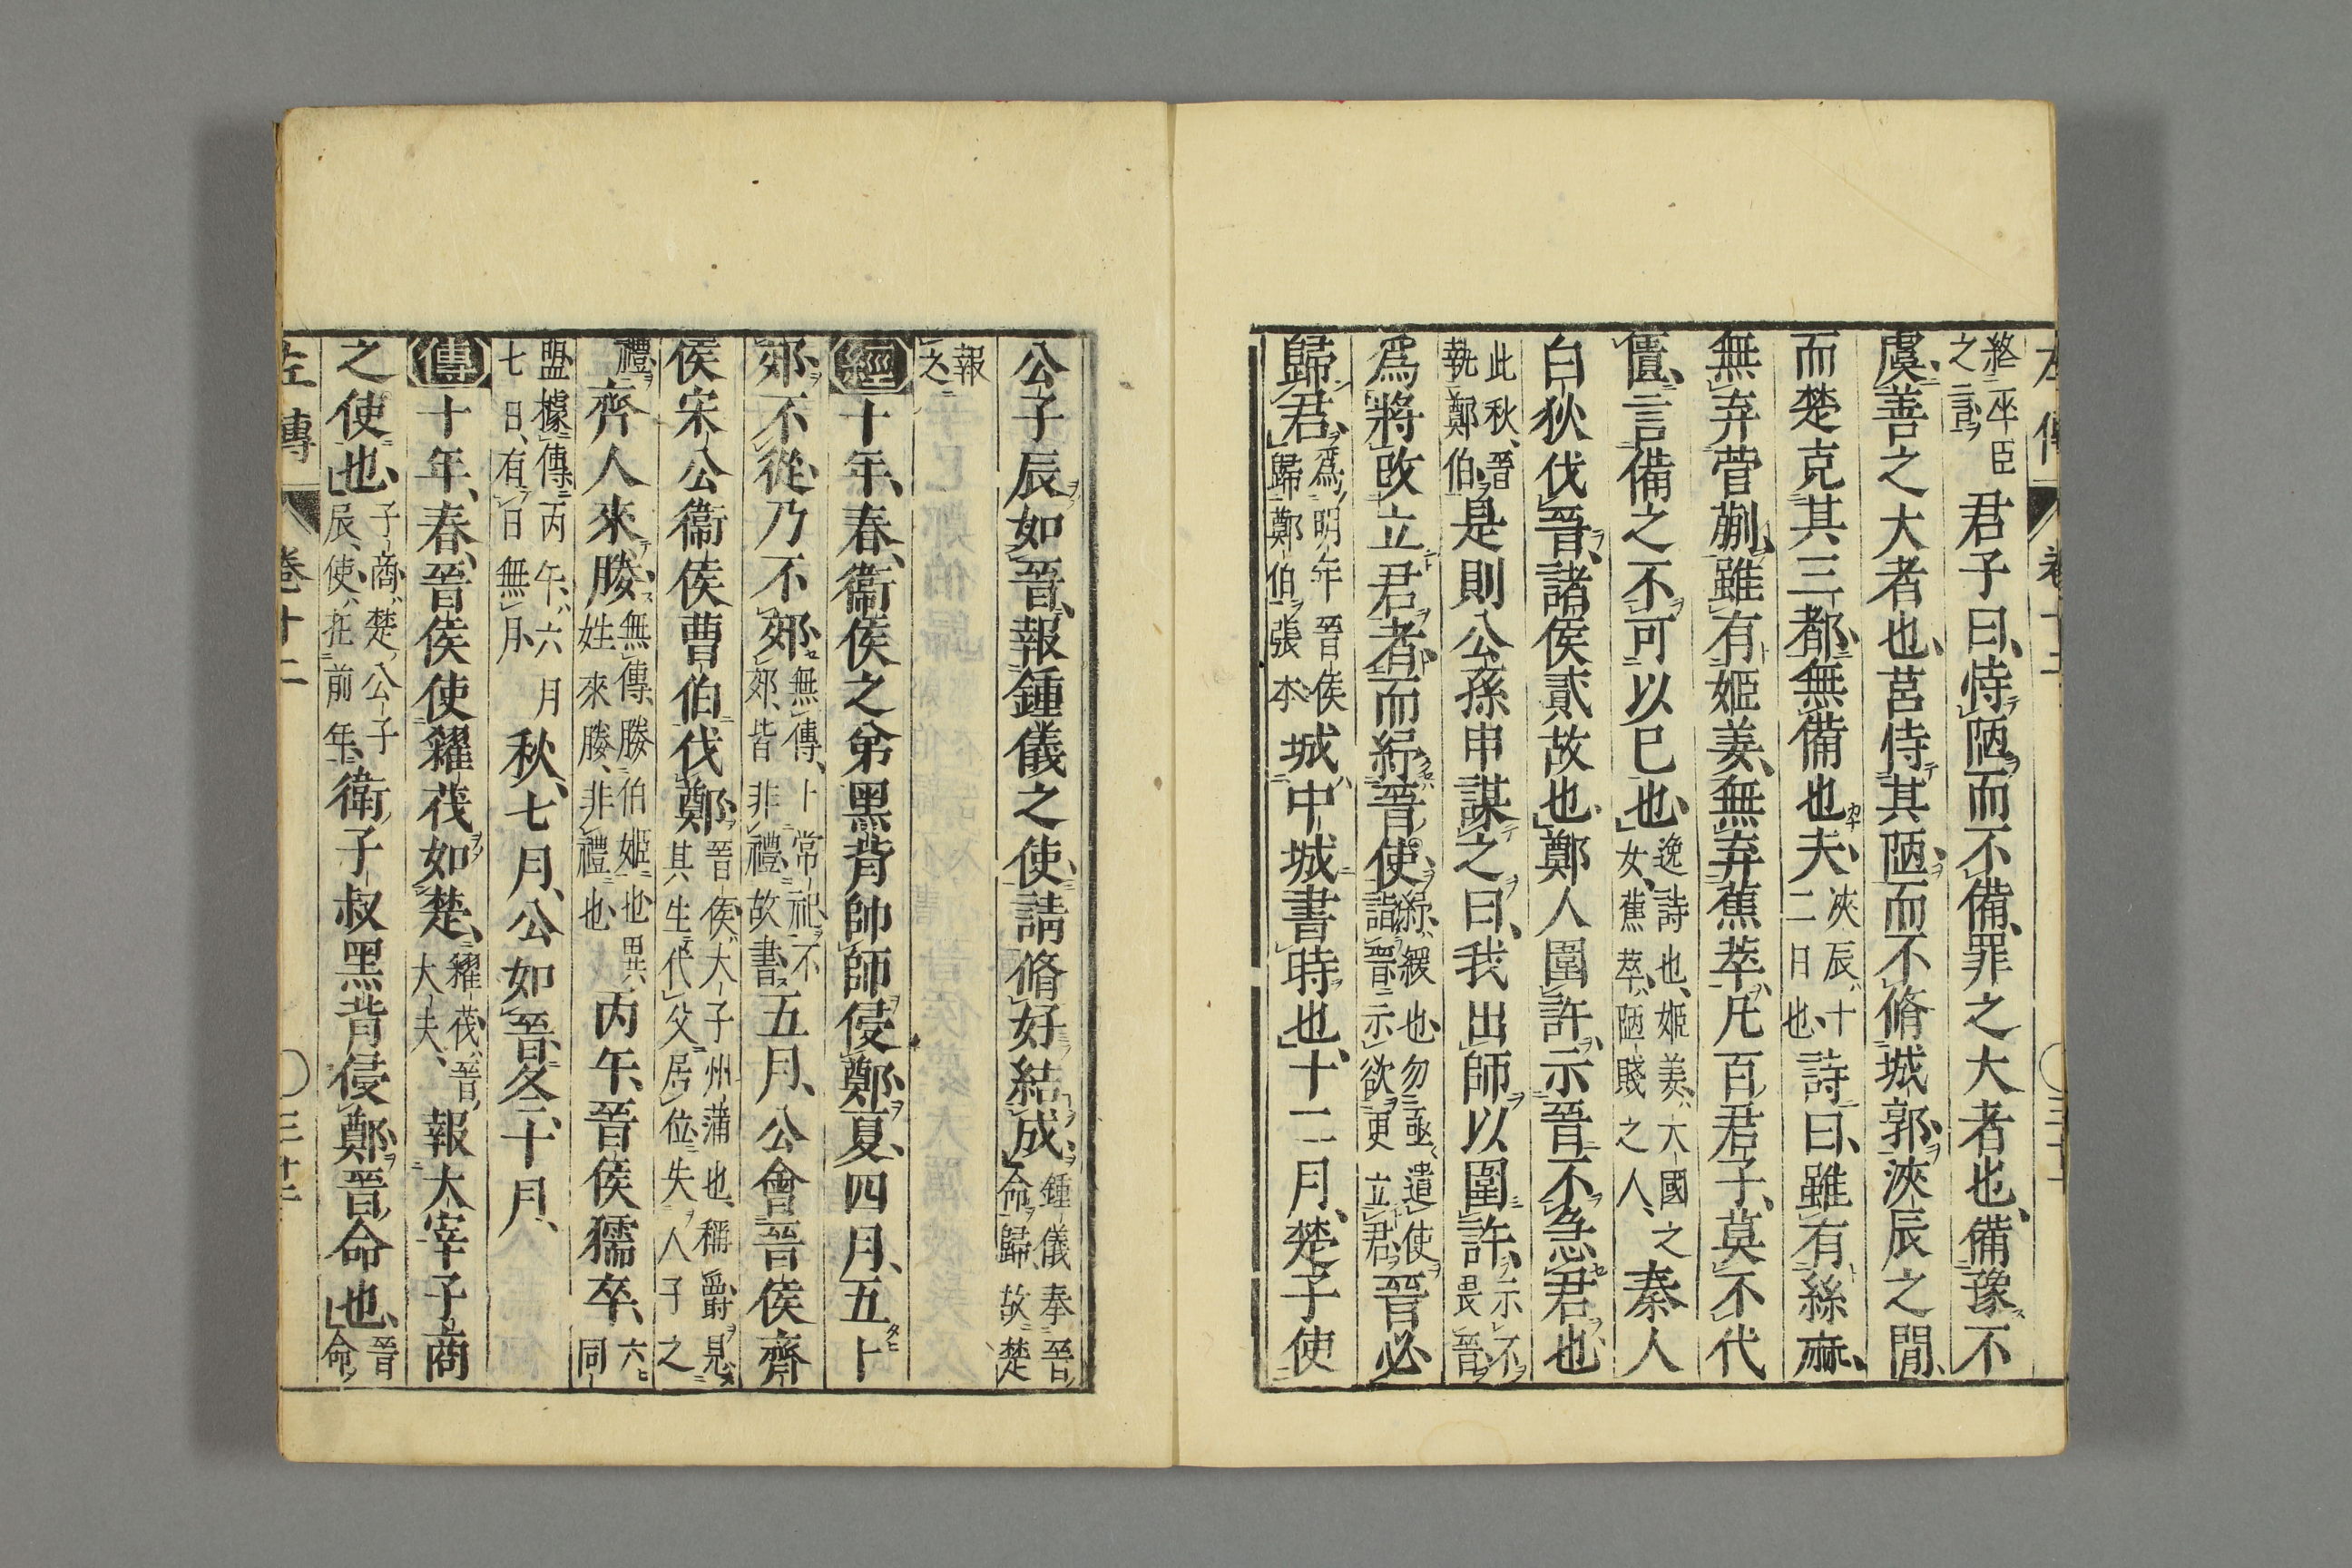 左傳 卷十二 ○三十一
終巫臣之言君子曰、恃陋而不備、罪之大者也、備豫不
虞、善之大者也、莒恃其陋、而不脩城郭、浹辰之間、
而楚克其三都、無備也夫、浹辰、十二日也、詩曰、雖有絲麻、
無弃菅蒯、雖有姬姜、無弃蕉萃、凡百君子、莫不代
匱、言備之不可以已也、逸詩也、姬姜、大國之女、蕉萃、陋賤之人、秦人
白狄伐晉、諸侯貳故也、鄭人圍許、示晉不急君也、
此秋、晉執鄭伯、是則公孫申謀之曰、我出師以圍許、示不畏晉、
爲將改立君者、而紓晉使、紓、緩也、勿亟遣使詣晉、示欲更立君、晉必
歸君、爲明年晉侯歸鄭伯張本城中城、書時也、十二月、楚子使
公子辰如晉、報鍾儀之使、請脩好結成、鍾儀奉晉命歸、故楚
報之
經十年、春、衞侯之弟黑背帥師侵鄭、夏、四月、五卜
郊、不從、乃不郊、無傳、卜常祀、不郊、皆非禮、故書、五月、公會晉侯齊
侯宋公衞侯曹伯伐鄭、晉侯、大子州蒲也、稱爵、見其生代父居位、失人子之
禮、齊人來媵、無傳、媵伯姬也、異姓來媵、非禮也、丙午、晉侯獳卒、六同
盟、據傳、丙午、六月七日、有日無月、秋、七月、公如晉、冬、十月、
傳十年、春、晉侯使糴茷如楚、糴茷、晉大夫、報大宰子商
之使也、子商、楚公子辰、使在前年、衛子叔黑背侵鄭、晉命也、晉命
左傳 卷十二 ○三十二